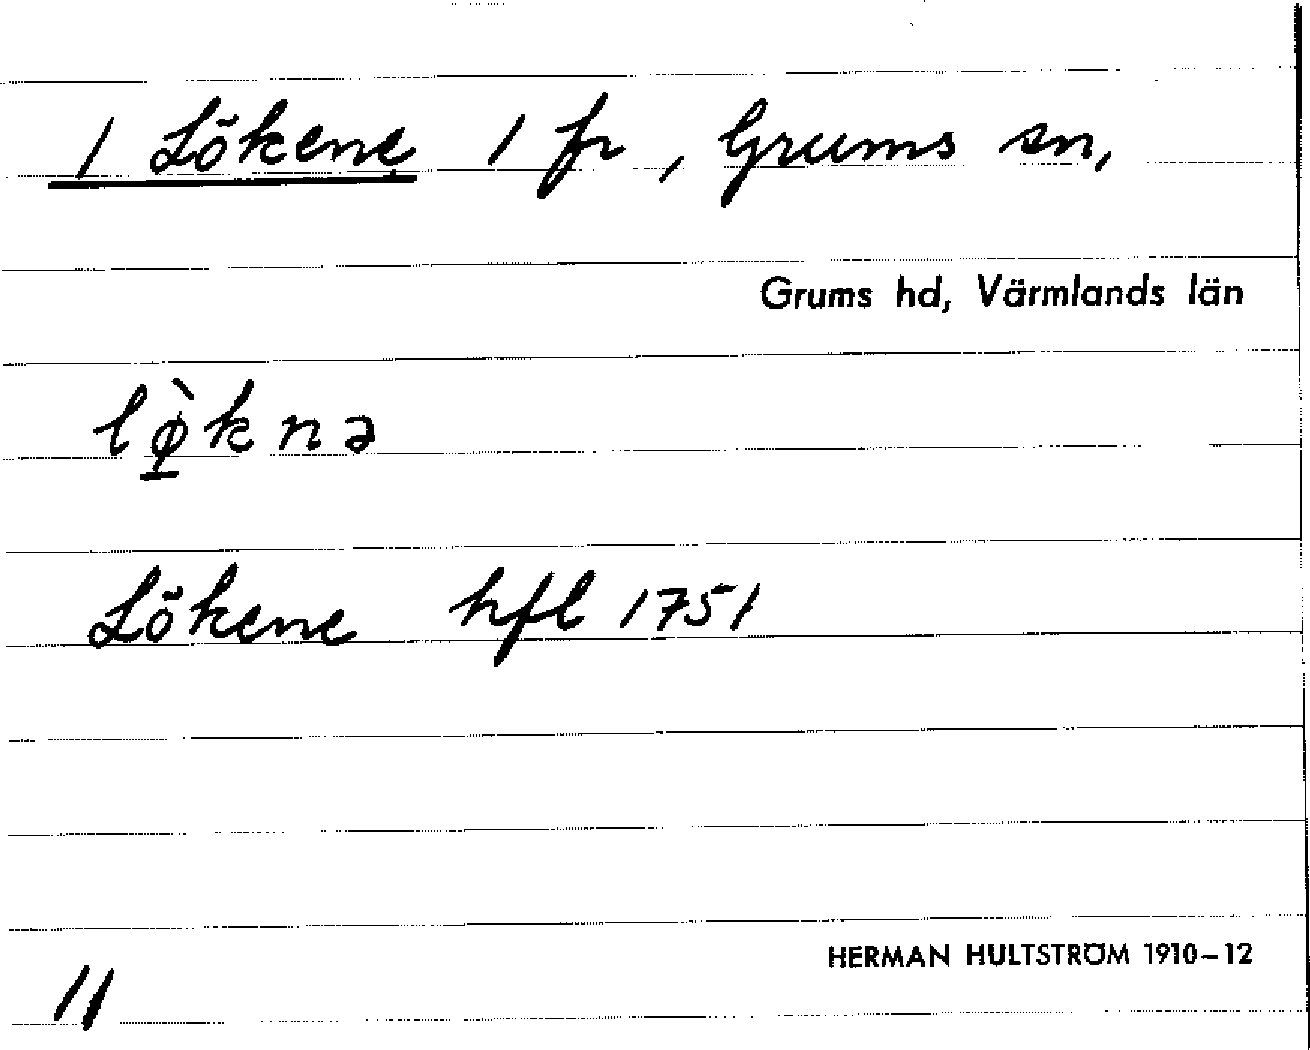 1 Lökene 1 fr, Grums sn,
Grums hd, Värmlands län
lø̱̀knə
Lökene hfl 1751
HERMAN HULTSTRÖM 1910–12
11